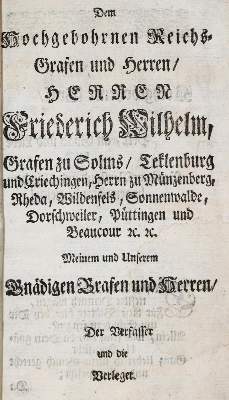 Dem
Hochgebohrnen Reichs-
Grafen und Herren/
HERREN
Friederich Wilhelm,
Grafen zu Solms/ Teklenburg
und Criechingen, Herrn zu Münzenberg,
Rheda, Wildenfels, Sonnenwalde,
Dorschweiler, Püttingen und
Beaucour ꝛc. ꝛc.
Meinem und Unserem
Gnädigen Grafen und Herren/
Der Verfasser
und die
Verleger.